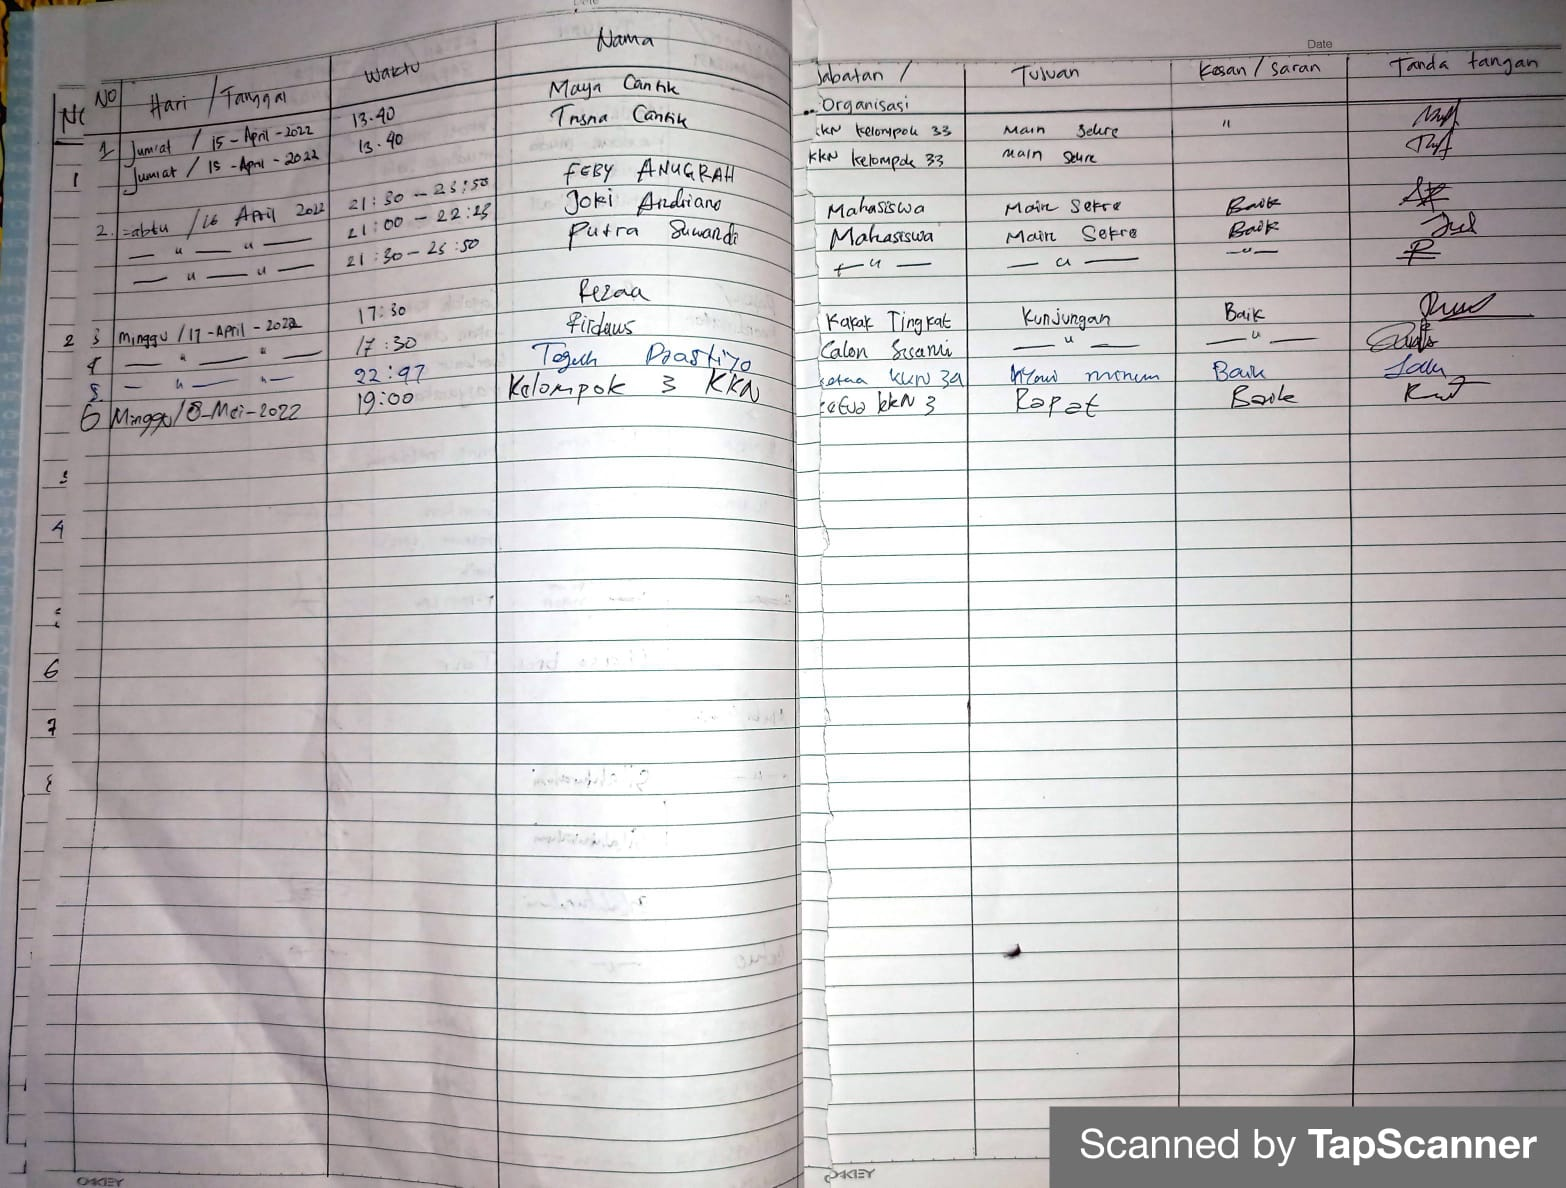 Date
NO Hari / Tanggal Waktu Nama Jabatan / Organisasi Tujuan Kesan / Saran Tanda tangan
1 Jumiat / 15 - April - 2022 13.40 Maya Cantik KKN Kelompok 33 Main Sekre "
Jumiat / 15 - April - 2022 13.40 Cantik KKN Kelompok 33 Main Sekre
2. Sabtu / 16 April 2022 21:30 - 23:50 FEBY ANUGRAH Mahasiswa Main Sekre Baik
— " — " — 21:00 - 22:25 Joki Andriano Mahasiswa Main Sekre Baik
— " — " — 21:30 - 23:50 Putra Suwandi — " — — " — — " —
3 Minggu / 17 - April - 2022 17:30 Rezaa Kakak Tingkat Kunjungan Baik
4 — " — " — 17:30 Firdaus Calon Suami — " — — " —
5. — " — " — 22:47 Teguh Prastiyo Ketua KKN minum Baik
6 Minggu / 8 - Mei - 2022 19:00 Kelompok 3 KKN Ketua KKN 3 Rapat Baik
1
2
3
4
6
7
8
OAKEY
OAKEY
Scanned by TapScanner